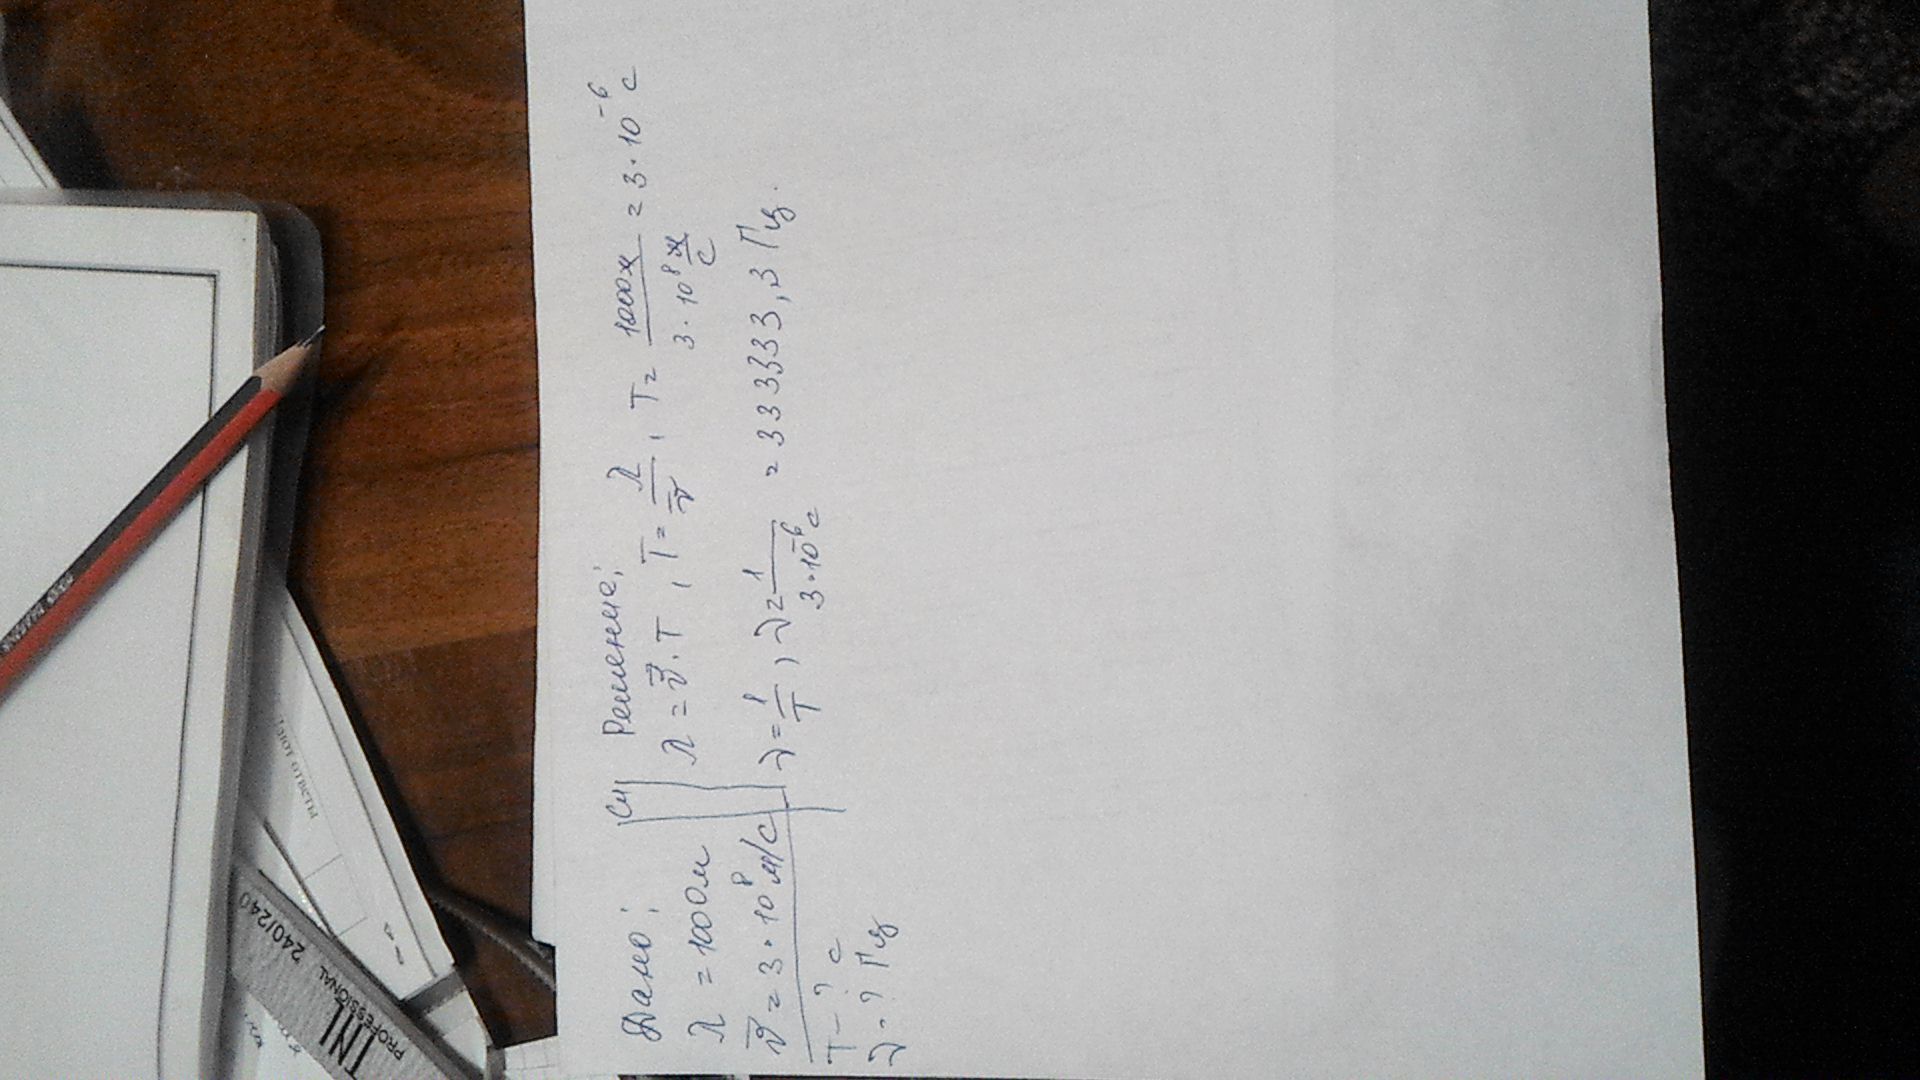 Дано:
λ = 1000м
v⃗ = 3·10⁸ м/с
T - ? с
ν - ? Гц
СИ
Решение:
λ = v⃗·T, T = λ/v⃗, T = 1000м/(3·10⁸ м/с) = 3·10⁻⁶ с
ν = 1/T, ν = 1/(3·10⁻⁶ с) = 333333,3 Гц.
240/240
PROFESSIONAL
TNL
ОТВЕТЫ